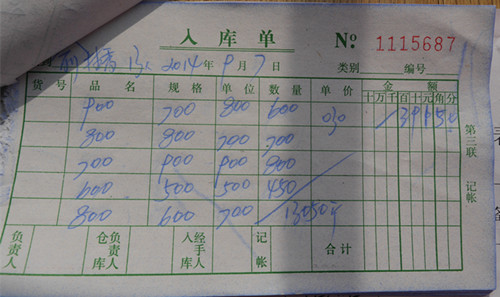 入库单 № 1115687
2014年9月7日 类别 编号
货号 品名 规格 单位 数量 单价 金额
十万千百十元角分
900 700 800 600 030
800 800 700 700
700 900 900 800
600 500 500 450
800 600 700 13050斤
负责人 仓库负责人 入经手人 记帐 合计
第三联 记帐